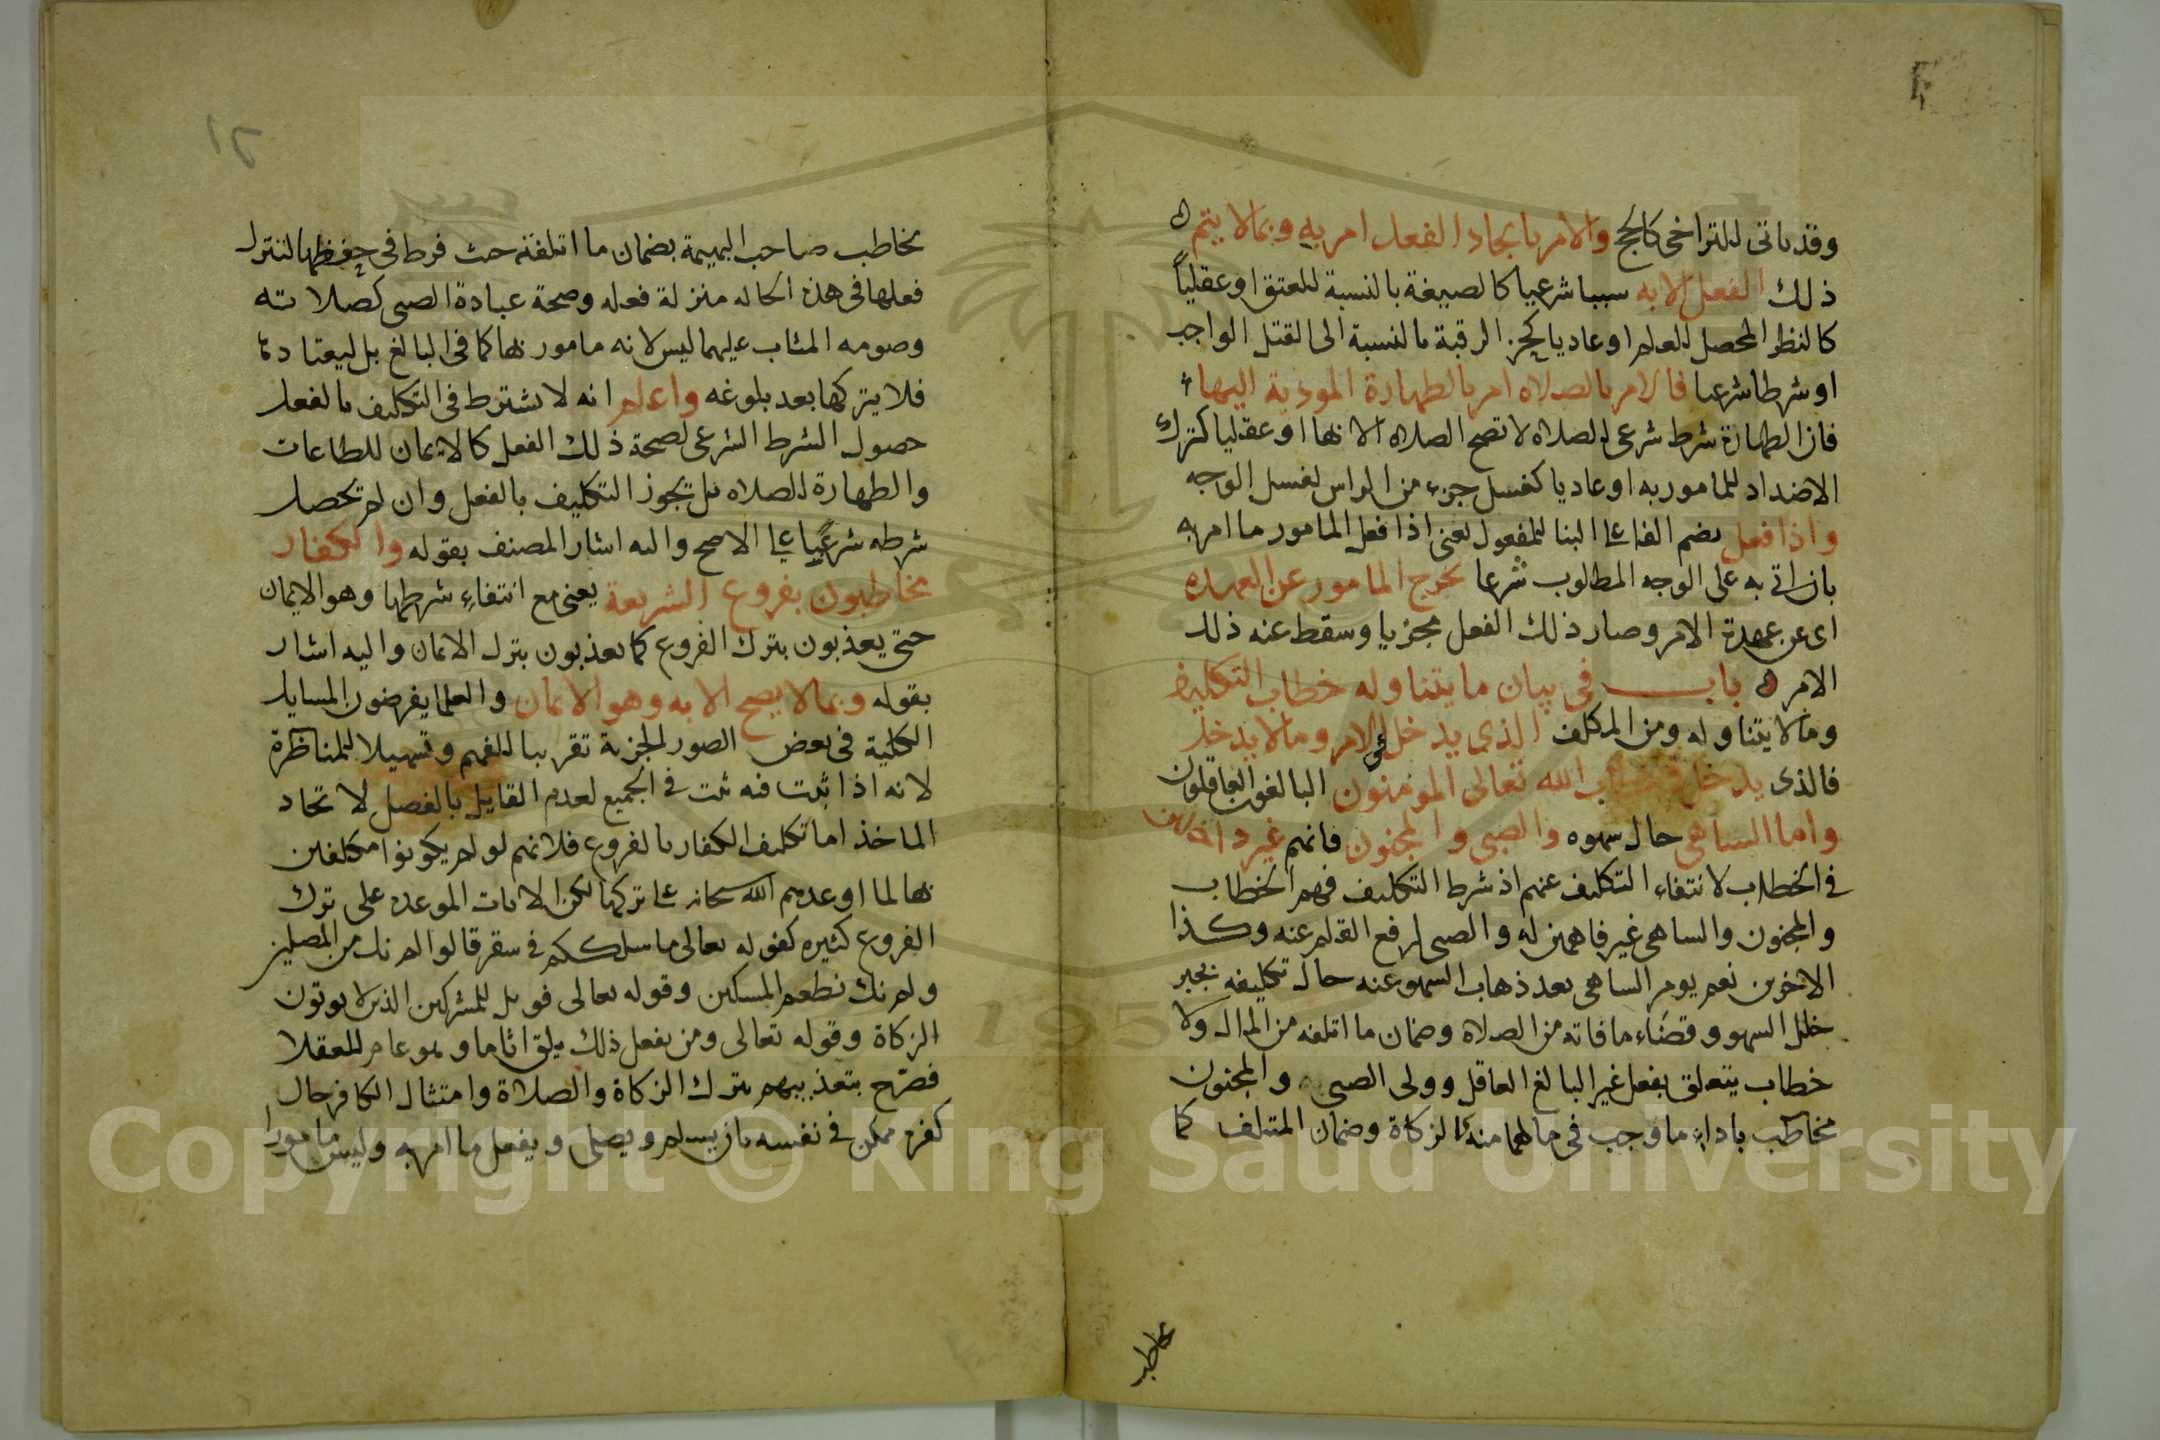 وقد ياتى للتراخى كالحج والامر بايجاد الفعل امر به وبما لا يتم
ذلك الفعل الا به سببا شرعيا كالصيغة بالنسبة للعتق او عقلياً
كالنظر المحصل للعلم او عاديا كحز الرقبة بالنسبة الى القتل الواجب
او شرطا شرعيا فالامر بالصلاه امر بالطهارة المودية اليها
فان الطهارة شرط شرعى للصلاه لا تصح الصلاه الا بها او عقليا كترك
الاضداد للمامور به او عاديا كغسل جزء من الراس لغسل الوجه
واذا فعل بضم الفا على البنا للمفعول يعنى اذا فعل المامور ما امر به
بان اتى به على الوجه المطلوب شرعا خرج المامور عن العهده
اى عن عهدة الامر وصار ذلك الفعل مجزيا وسقط عنه ذلك
الامر باب فى بيان ما يتناوله خطاب التكليف
وما لا يتناوله ومن المكلف الذى يدخل فى الامر وما لا يدخل
فالذى يدخل فى خطاب الله تعالى المومنون البالغون العاقلون
واما الساهى حال سهوه والصبى والمجنون فانهم غير داخلين
فى الخطاب لانتفاء التكليف عنهم اذ شرط التكليف فهم الخطاب
والمجنون والساهى غير فاهمين له والصبى لرفع القلم عنه وكذا
الاخرين نعم يومر الساهى بعد ذهاب السهو عنه حال تكليفه بجبر
خلل السهو وقضاء ما فاته من الصلاه وضمان ما اتلفه من المال ولا
خطاب يتعلق بفعل غير البالغ العاقل وولى الصبى والمجنون
مخاطب باداء ما وجب فى مالهما منه كالزكاة وضمان المتلف كما
يخاطب
يخاطب صاحب البهيمة بضمان ما اتلفته حيث فرط فى حفظها لتنزل
فعلها فى هذه الحاله منزلة فعله وصحة عبادة الصبى كصلاته
وصومه المثاب عليهما ليس لانه مامور بها كما فى البالغ بل ليعتادها
فلا يتركها بعد بلوغه واعلم انه لا يشترط فى التكليف بالفعل
حصول الشرط الشرعى لصحة ذلك الفعل كالايمان للطاعات
والطهارة للصلاه بل يجوز التكليف بالفعل وان لم يحصل
شرطه شرعيا على الاصح واليه اشار المصنف بقوله والكفار
مخاطبون بفروع الشريعة يعنى مع انتفاء شرطها وهو الايمان
حتى يعذبون بترك الفروع كما يعذبون بترك الايمان واليه اشار
بقوله وبما لا يصح الا به وهو الايمان والعلما يفرضون المسايل
الكلية فى بعض الصور الجزية تقريبا للفهم وتسهيلا للمناظرة
لانه اذا ثبت فيه ثبت فى الجميع لعدم القايل بالفصل لاتحاد
الماخذ اما تكليف الكفار بالفروع فلانهم لو لم يكونوا مكلفين
بها لما اوعدهم الله سبحانه على تركها لكن الايات الموعده على ترك
الفروع كثيره كقوله تعالى ما سلككم فى سقر قالوا لم نك من المصلين
ولم نك نطعم المسكين وقوله تعالى فويل للمشركين الذين لا يوتون
الزكاة وقوله تعالى ومن يفعل ذلك يلق اثاما وهو عام للعقلا
فصرّح بتعذيبهم بترك الزكاة والصلاة وامتثال الكافر حال
كفره ممكن فى نفسه بان يسلم ويصلى ويفعل ما امر به وليس مامورا
Copyright © King Saud University